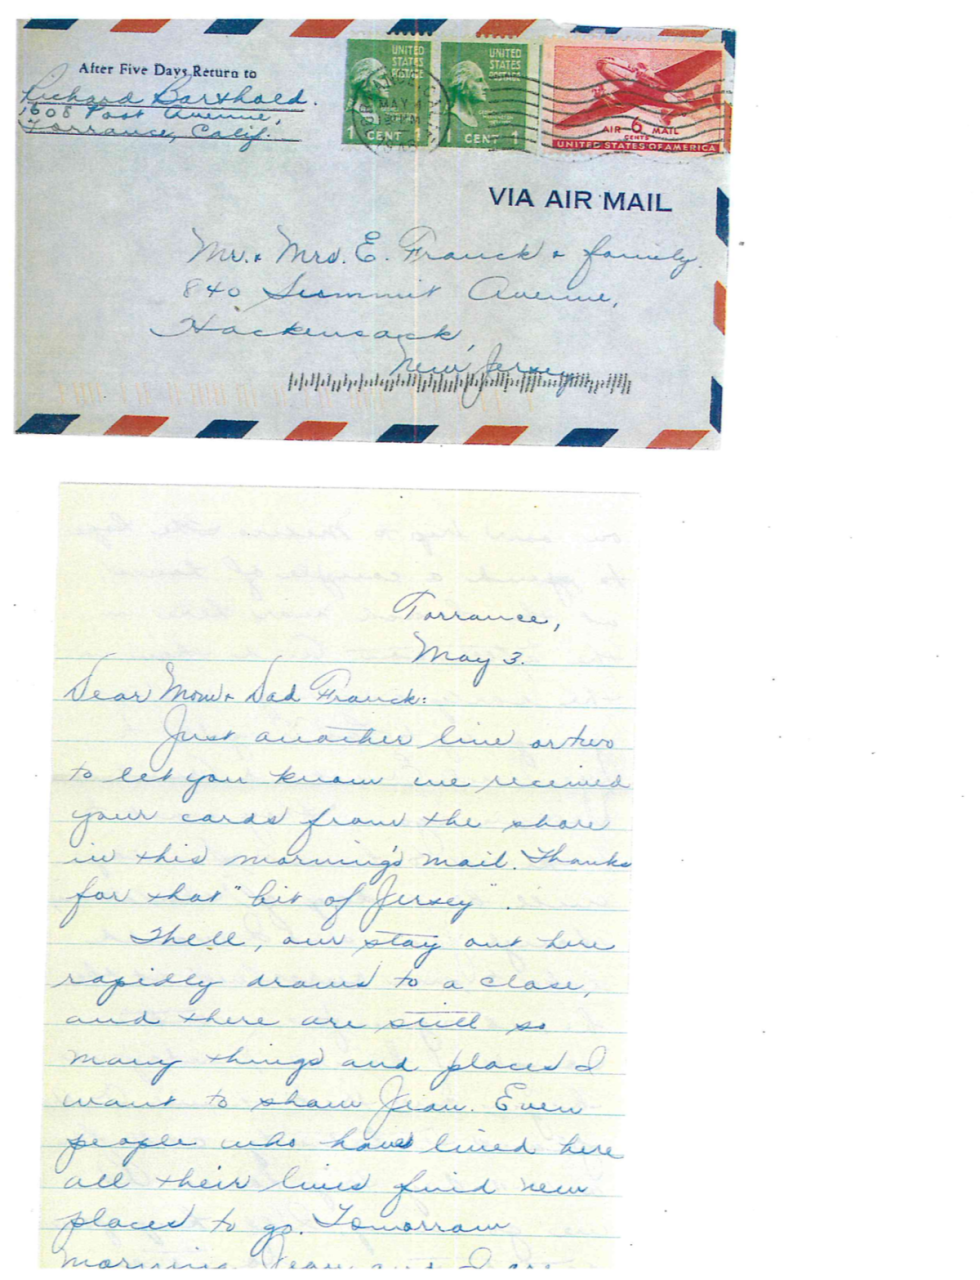 After Five Days Return to
Richard Barthold.
1608 Post Avenue,
Torrance, Calif.
UNITED
STATES
POSTAGE
1 CENT 1
UNITED
STATES
POSTAGE
1 CENT 1
MAY
AIR 6 MAIL
CENTS
UNITED STATES OF AMERICA
VIA AIR MAIL
Mr. & Mrs. E. Franck & family.
840 Summit Avenue,
Hackensack,
New Jersey
Torrance,
May 3.
Dear Mom & Dad Franck:
Just another line or two
to let you know we received
your cards from the shore
in this morning's mail. Thanks
for that "bit of Jersey".
Well, our stay out here
rapidly draws to a close,
and there are still so
many things and places I
want to show Jean. Even
people who have lived here
all their lives find new
places to go. Tomorrow
morning Jean and I are